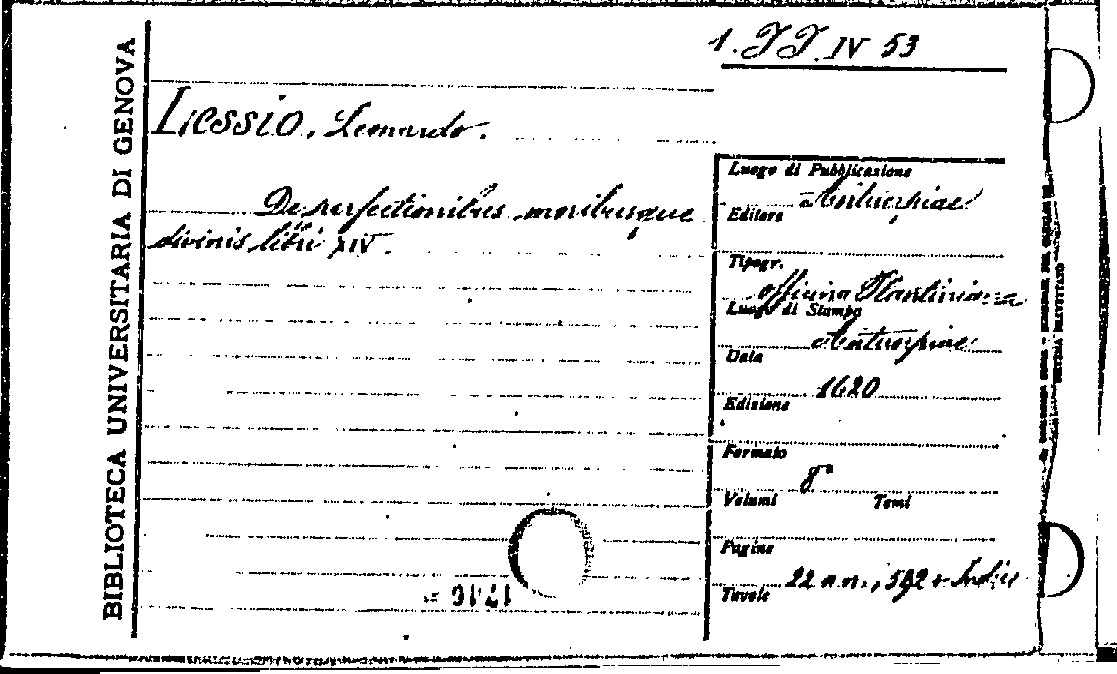 1. JJ. IV 53
BIBLIOTECA UNIVERSITARIA DI GENOVA
Lessio, Leonardo.
De perfectionibus moribusque
divinis libri XIV.
Luogo di Pubblicazione
Antuerpiae
Editore
Tipogr.
Officina Plantiniana
Luogo di Stampa
Antuerpiae
Data
1620
Edizione
Formato
8°
Volumi Tomi
Pagine
22 n.n., 592 + Indici
Tavole